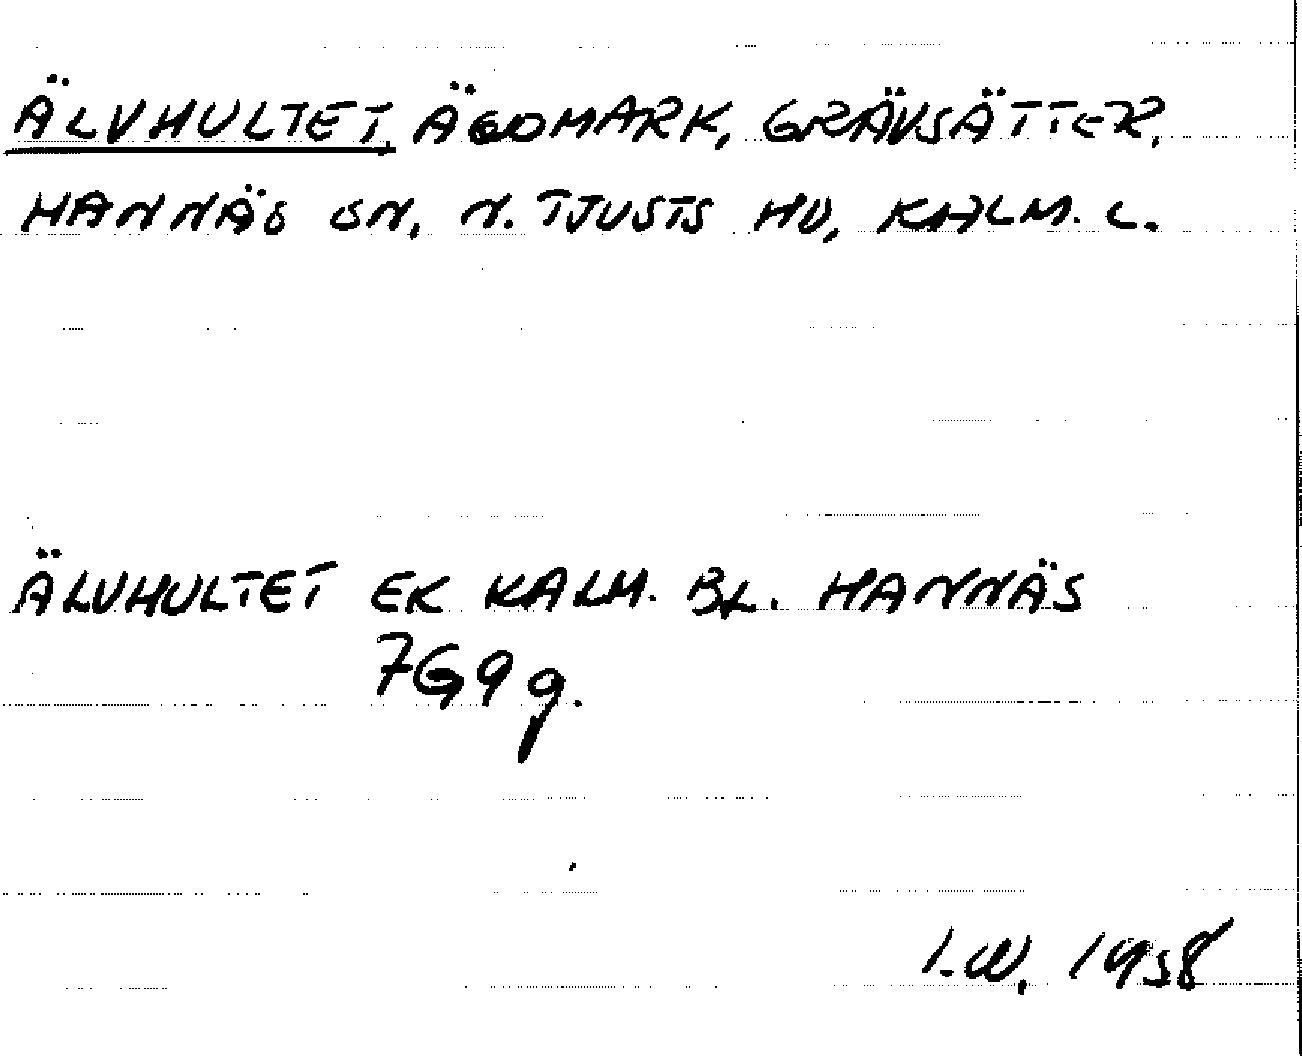 ÄLVHULTET, ÄGOMARK, GRÄVSÄTTER,
HANNÄS SN, N. TJUSTS HD, KALM. L.
ÄLVHULTET EK KALM. BL. HANNÄS
7G9g.
I.W, 1958